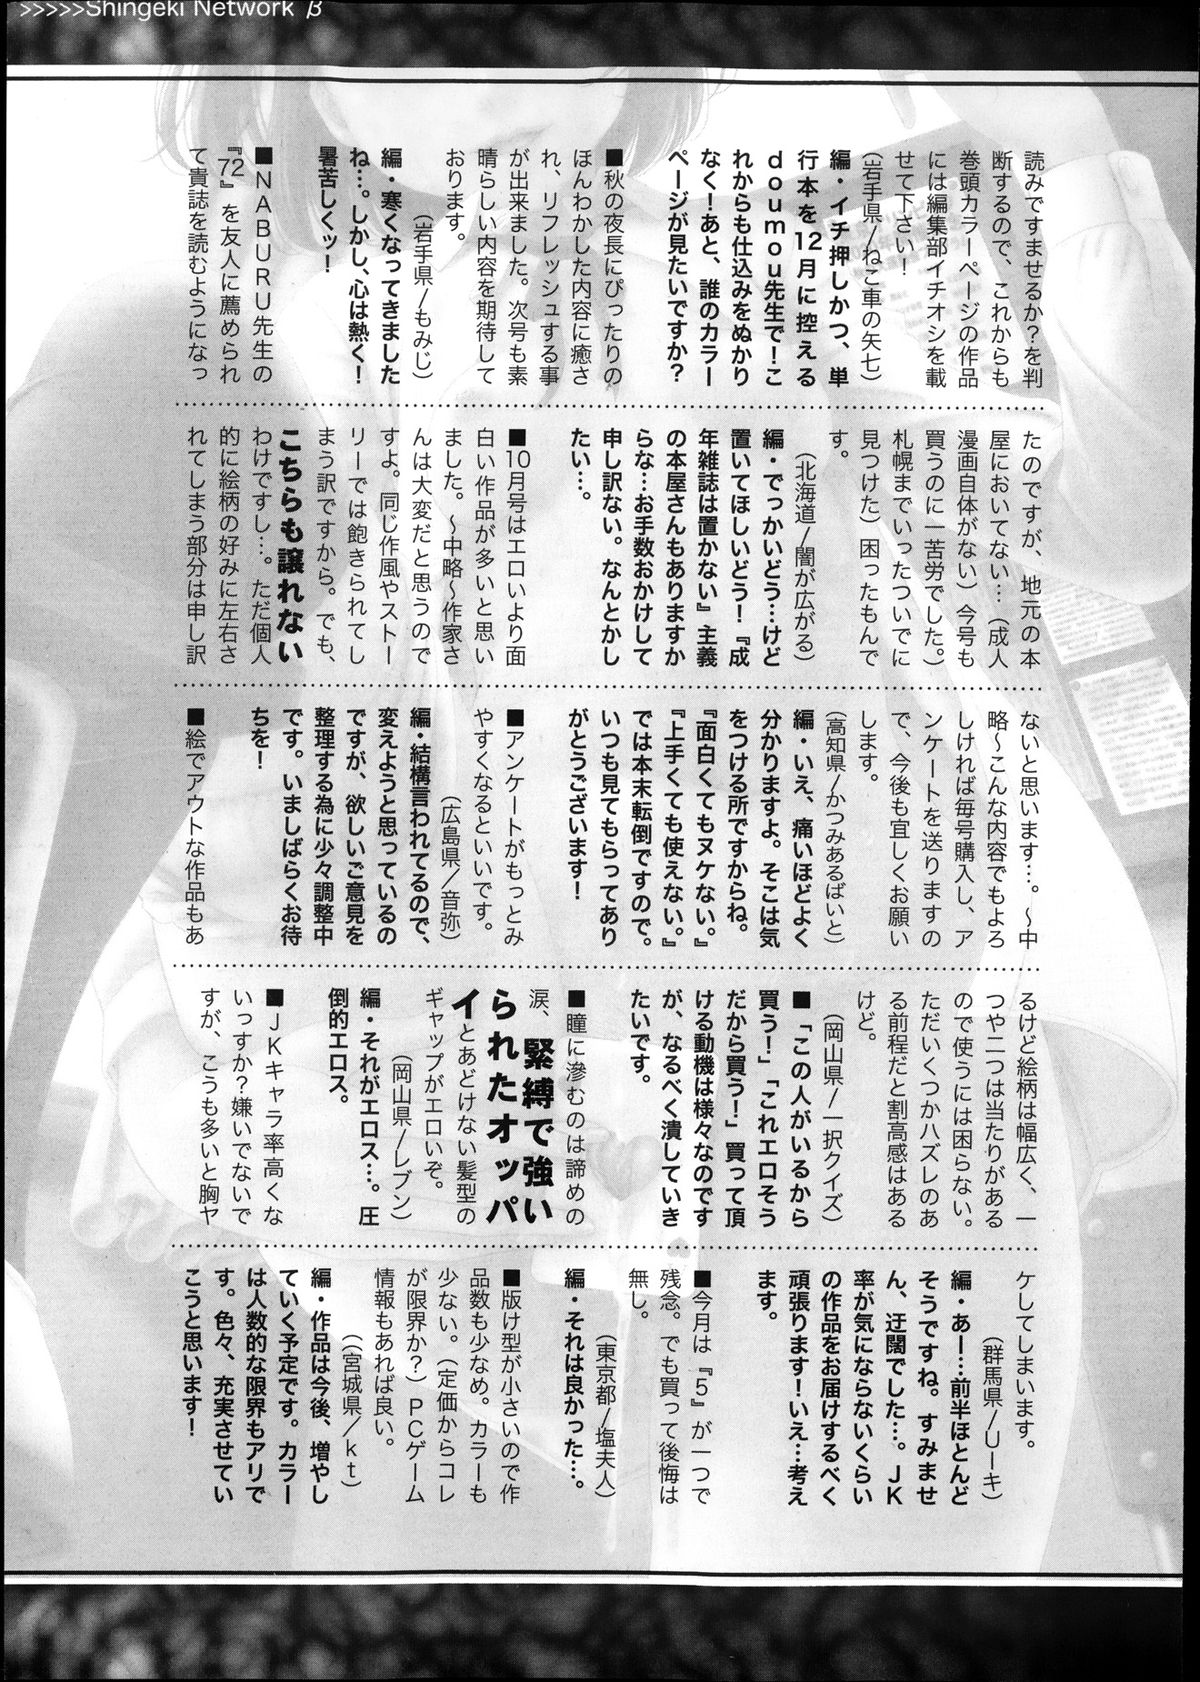 >>>>>Shingeki Network β
読みですませるか？を判
断するので、これからも
巻頭カラーページの作品
には編集部イチオシを載
せて下さい！
（岩手県／ねこ車の矢七）
編・イチ押しかつ、単
行本を12月に控える
ｄｏｕｍｏｕ先生で！こ
れからも仕込みをぬかり
なく！あと、誰のカラー
ページが見たいですか？
■秋の夜長にぴったりの
ほんわかした内容に癒さ
れ、リフレッシュする事
が出来ました。次号も素
晴らしい内容を期待して
おります。
（岩手県／もみじ）
編・寒くなってきました
ね…。しかし、心は熱く！
暑苦しくッ！
■ＮＡＢＵＲＵ先生の
『72』を友人に薦められ
て貴誌を読むようになっ
たのですが、地元の本
屋においてない…（成人
漫画自体がない）今号も
買うのに一苦労でした。）
札幌までいったついでに
見つけた）困ったもんで
す。
（北海道／闇が広がる）
編・でっかいどう…けど
置いてほしいどう！『成
年雑誌は置かない』主義
の本屋さんもありますか
らな…お手数おかけして
申し訳ない。なんとかし
たい…。
■10月号はエロいより面
白い作品が多いと思い
ました。～中略～作家さ
んは大変だと思うので
すよ。同じ作風やストー
リーでは飽きられてし
まう訳ですから。でも、
こちらも譲れない
わけですし…。ただ個人
的に絵柄の好みに左右さ
れてしまう部分は申し訳
ないと思います…。～中
略～こんな内容でもよろ
しければ毎号購入し、ア
ンケートを送りますの
で、今後も宜しくお願い
します。
（高知県／かつみあるばいと）
編・いえ、痛いほどよく
分かりますよ。そこは気
をつける所ですからね。
『面白くてもヌケない。』
『上手くても使えない。』
では本末転倒ですので。
いつも見てもらってあり
がとうございます！
■アンケートがもっとみ
やすくなるといいです。
（広島県／音弥）
編・結構言われてるので、
変えようと思っているの
ですが、欲しいご意見を
整理する為に少々調整中
です。いましばらくお待
ちを！
■絵でアウトな作品もあ
るけど絵柄は幅広く、一
つや二つは当たりがある
ので使うには困らない。
ただいくつかハズレのあ
る前程だと割高感はある
けど。
（岡山県／一択クイズ）
■「この人がいるから
買う！」「これエロそう
だから買う！」買って頂
ける動機は様々なのです
が、なるべく潰していき
たいです。
■瞳に滲むのは諦めの
涙、緊縛で強い
られたオッパ
イとあどけない髪型の
ギャップがエロいぞ。
（岡山県／レブン）
編・それがエロス…。圧
倒的エロス。
■ＪＫキャラ率高くな
いっすか？嫌いでないで
すが、こうも多いと胸ヤ
ケしてしまいます。
（群馬県／Ｕーキ）
編・あー…前半ほとんど
そうですね。すみませ
ん、迂闊でした…。ＪＫ
率が気にならないくらい
の作品をお届けするべく
頑張ります！いえ…考え
ます。
■今月は『５』が一つで
残念。でも買って後悔は
無し。
（東京都／塩夫人）
編・それは良かった…。
■版け型が小さいので作
品数も少なめ。カラーも
少ない。（定価からコレ
が限界か？）ＰＣゲーム
情報もあれば良い。
（宮城県／ｋｔ）
編・作品は今後、増やし
ていく予定です。カラー
は人数的な限界もアリで
す。色々、充実させてい
こうと思います！